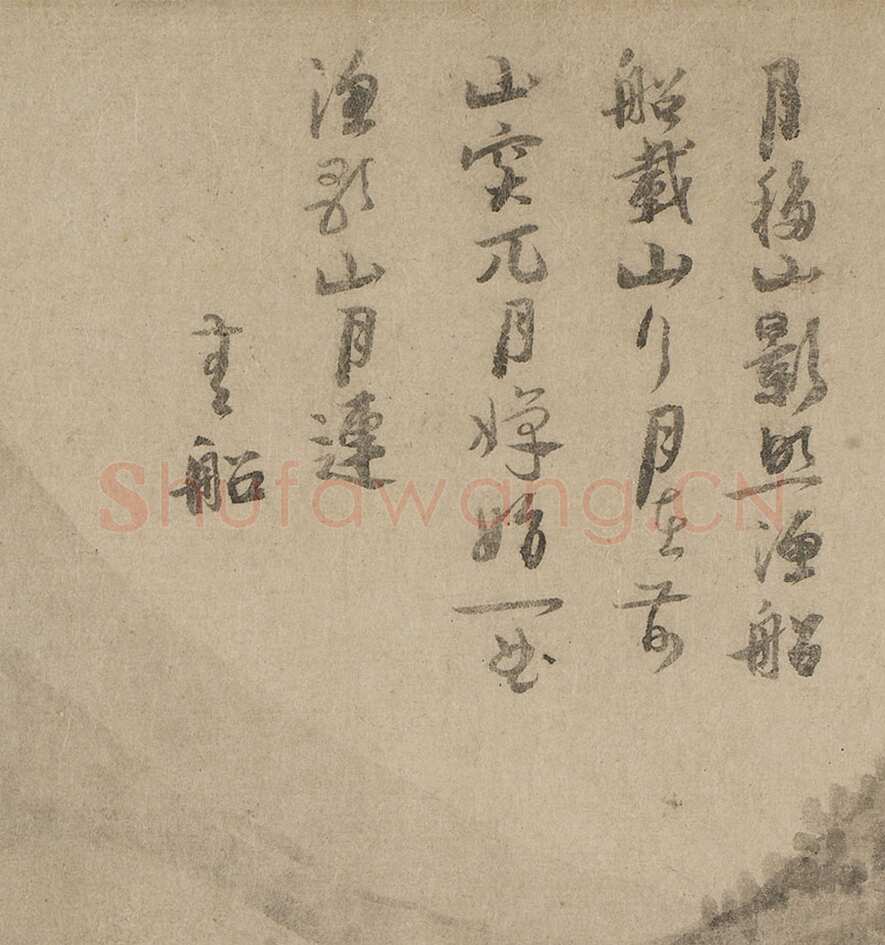 月移山影照漁船
船載山行月在前
山突兀月嬋娟一曲
漁歌山月連
畫船
Shufawang.CN